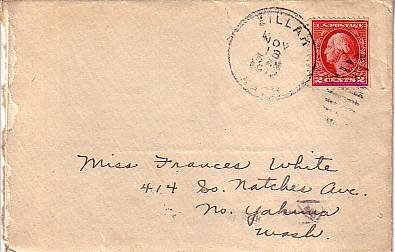 ZILLAH
NOV
13
WASH.
U.S. POSTAGE
2 CENTS 2
Miss Frances White
414 So. Natches Ave.
No. Yakima
Wash.